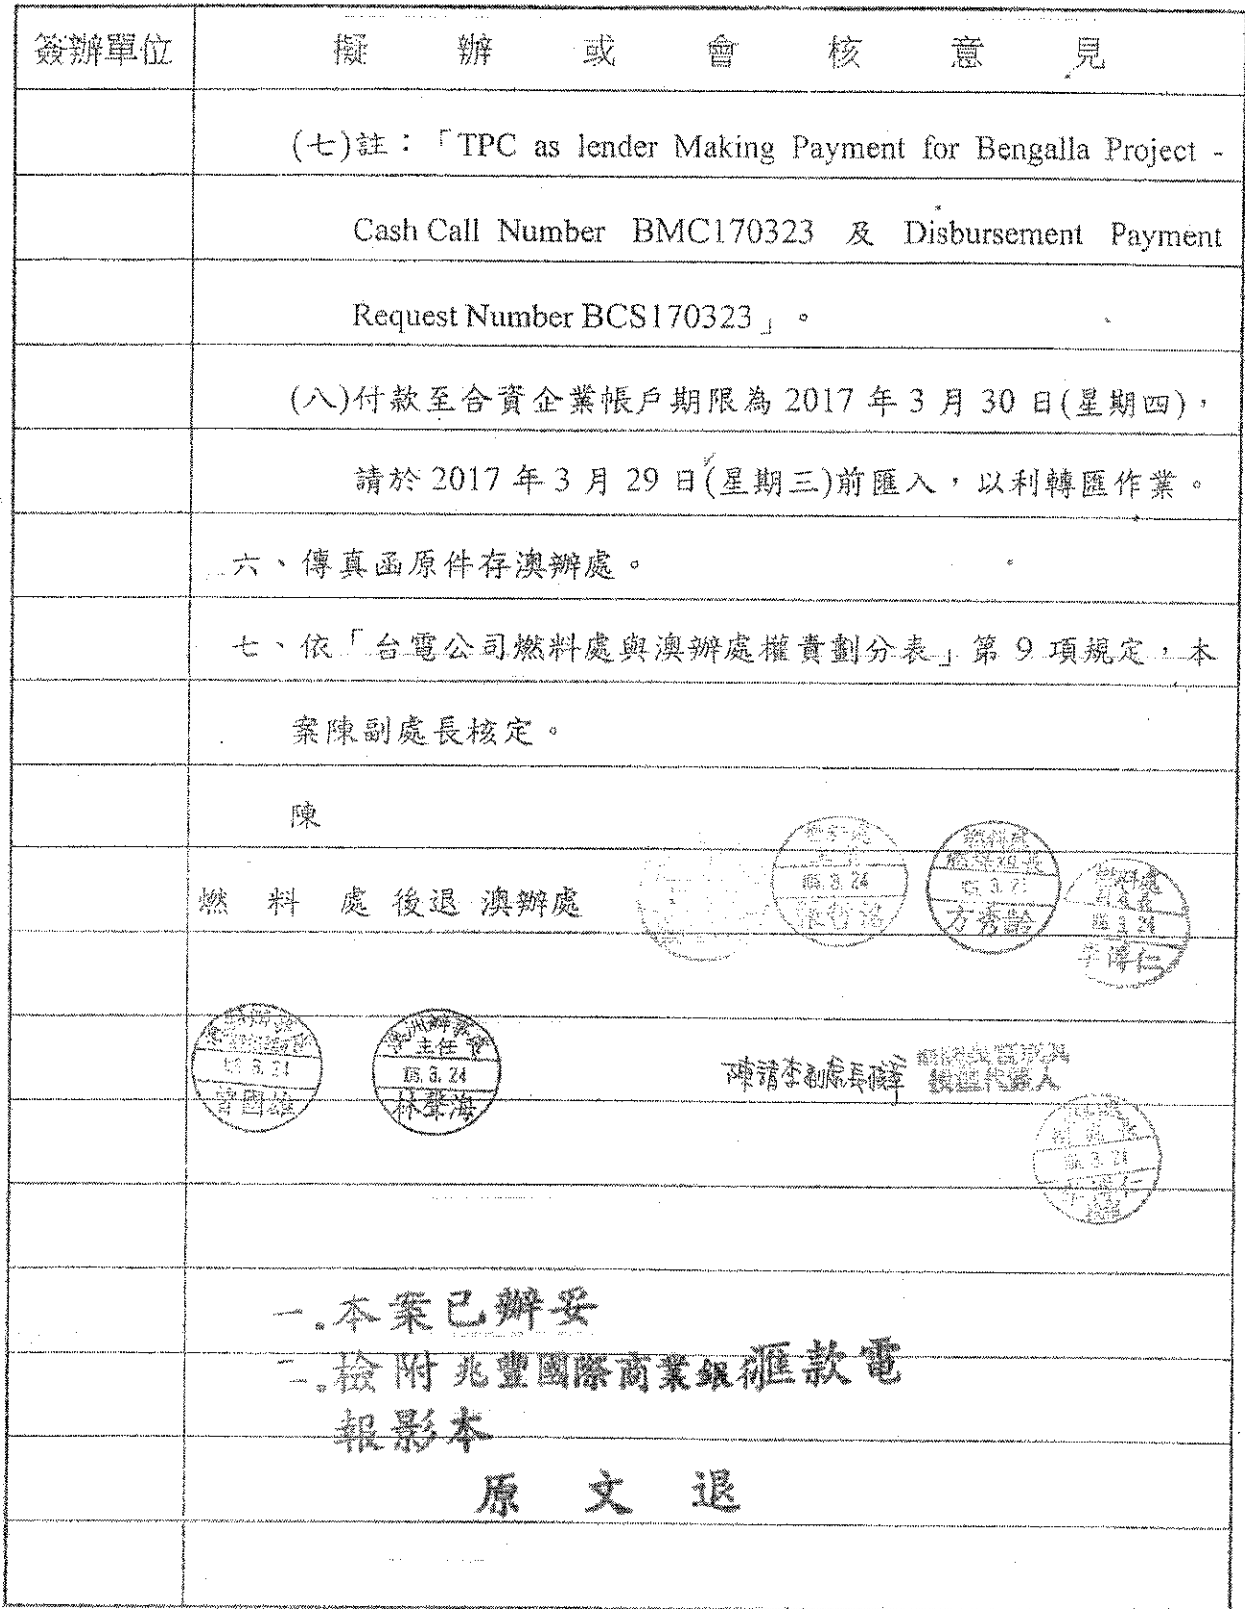 簽辦單位
擬辦或會核意見
(七)註：「TPC as lender Making Payment for Bengalla Project -
Cash Call Number BMC170323 及 Disbursement Payment
Request Number BCS170323」。
(八)付款至合資企業帳戶期限為 2017 年 3 月 30 日(星期四)，
請於 2017 年 3 月 29 日(星期三)前匯入，以利轉匯作業。
六、傳真函原件存澳辦處。
七、依「台電公司燃料處與澳辦處權責劃分表」第 9 項規定，本
案陳副處長核定。
陳
燃料處後退 澳辦處
燃料處
3. 24
燃料處
方秀齡
燃料處
3. 24
李
仁
3. 24
曾國雄
澳洲辦事處
主任
3. 24
林聲海
陳請李副處長
授權代簽人
3. 24
一.本案已辦妥
二.檢附兆豐國際商業銀行匯款電
報影本
原文退